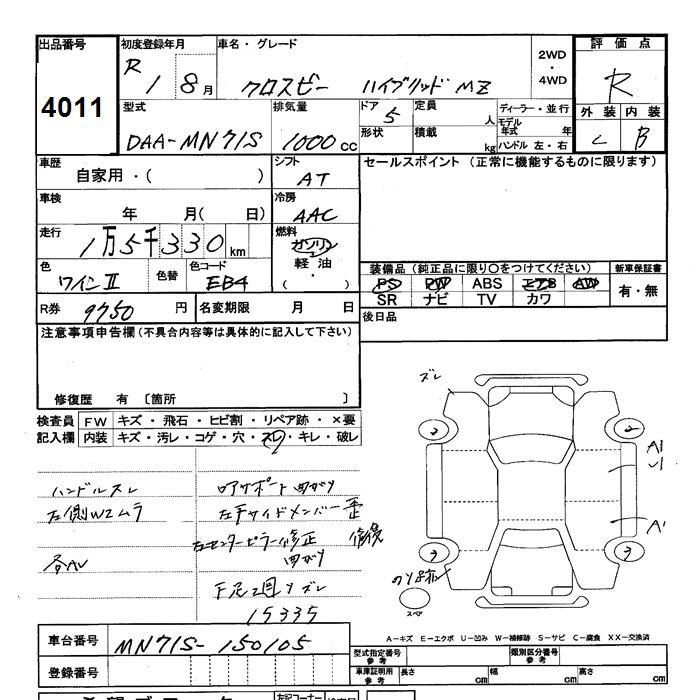 出品番号
4011
初度登録年月
R 1 8月
車名・グレード
クロスビー ハイブリッド MZ
2WD
・
4WD
評価点
R
外装 内装
C B
型式
DAA-MN71S
排気量
1000cc
ドア 5
形状
定員 人
積載 kg
ディーラー・並行
モデル
年式 年
ハンドル 左・右
車歴
自家用・( )
シフト
AT
セールスポイント (正常に機能するものに限ります)
車検
年 月( 日)
冷房
AAC
走行
1万5千330km
燃料
ガソリン
軽油
・
( )
色
ワインⅡ
色替
色コード
EB4
装備品 (純正品に限り○をつけてください)
PS PW ABS エアB AW
SR ナビ TV カワ
新車保証書
有・無
R券 9750円
名変期限 月 日
後日品
注意事項申告欄(不具合内容等は具体的に記入して下さい)
修復歴 有 〔箇所 〕
検査員
記入欄
FW キズ・飛石・ヒビ割・リペア跡・×要
内装 キズ・汚レ・コゲ・穴・スレ・キレ・破レ
ハンドルスレ
左側W2ムラ
各AU
左サイドメンバー歪
左センターピラー修正
曲がり
修復
15335
ズレ
A1
U1
A1
スペア
A-キズ E-エクボ U-凹み W-補修跡 S-サビ C-腐食 XX-交換済
車台番号
MN71S-150105
登録番号
型式指定番号
参考
類別区分番号
参考
車庫証明用
参考
長さ cm
幅 cm
高さ cm